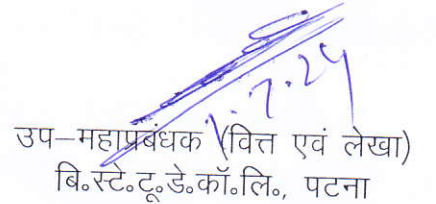 1.7.24
उप–महाप्रबंधक (वित्त एवं लेखा)
बि॰स्टे॰टू॰डे॰कॉ॰लि॰, पटना